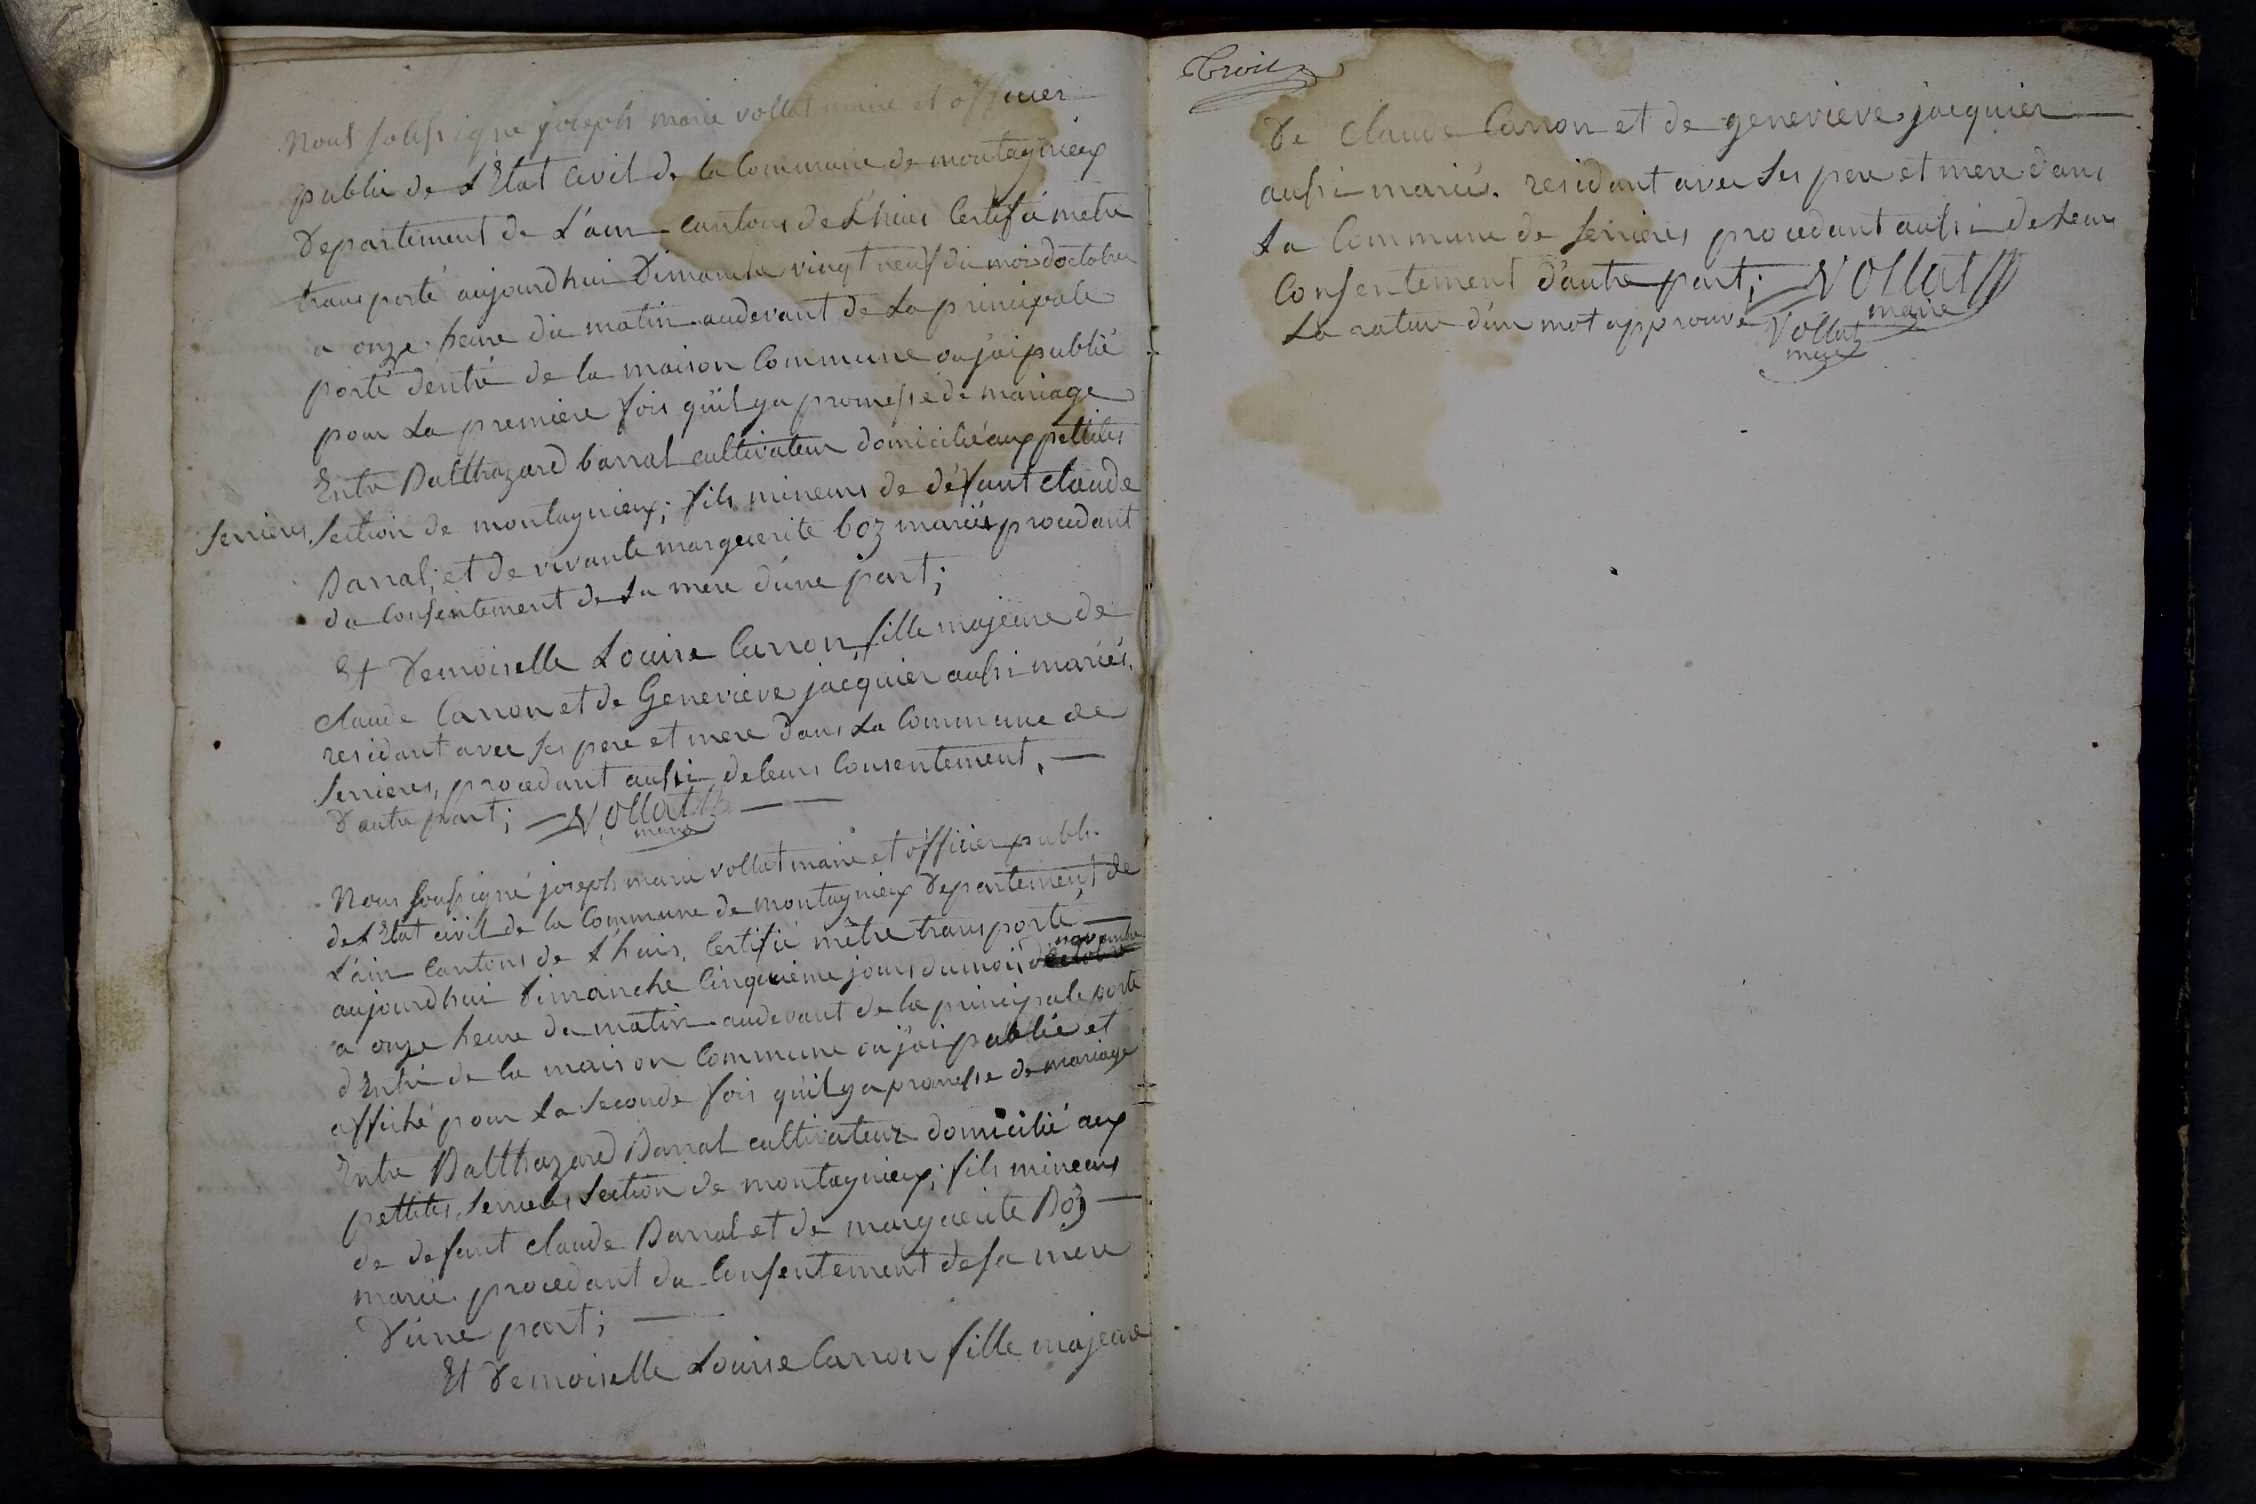 Nous soussigné joseph marie vollat maire et officier
public de L'Etat civil de la Commune de montagnieux
Departement de L'ain cantons de L'huis Certifié metre
transporté aujourdhui Dimanche vingt neuf du mois d'octobre
a onze heure du matin audevant de La principale
porte d'entré de la maison Commune ou j'ai publié
pour La premiere fois qu'il y a promesse de mariage
Entre Balthazard barral cultivateur domicilié aux pettites
serrieres, section de montagnieux; fils mineurs de défunt claude
Barral; et de vivante marguerite boz mariés procedant
du consentement de Sa mere d'une part;
Et Demoiselle Louise Carron, fille majeure de
claude Carron et de Genevieve jacquier aussi mariés.
residant avec ses pere et mere dans La Commune de
Serrieres, procedant aussi de leurs Consentement, —
D'autre part; — Vollat —
maire
Nous soussigné joseph marie vollat maire et officier public
de L'Etat civil de la Commune de montagnieux Departement de
L'ain Cantons de L'huis, Certifié mêtre transporté —
novembre
aujourdhui Dimanche Cinquieme jours du mois d'octobre
a onze heure du matin audevant de la principale porte
d'Entré de la maison Commune ou j'ai publié et
affiché pour La Seconde fois qu'il y a promesse de mariage
Entre Balthazard Barral cultivateur domicilié aux
pettites Serrieres Section de montagnieux; fils mineurs
de defunt claude Barral et de marguerite Boz —
marié procedant du Consentement de sa mere
D'une part; —
Et Demoiselle Louise Carron fille majeure
trois
De claude Carron et de genevieve jacquier —
aussi mariés. residant avec Ses pere et mere dans
La Commune de serrieres procedant aussi de Leurs
Consentement d'autre part; Vollat
maire
La rature d'un mot approuvé Vollat
maire